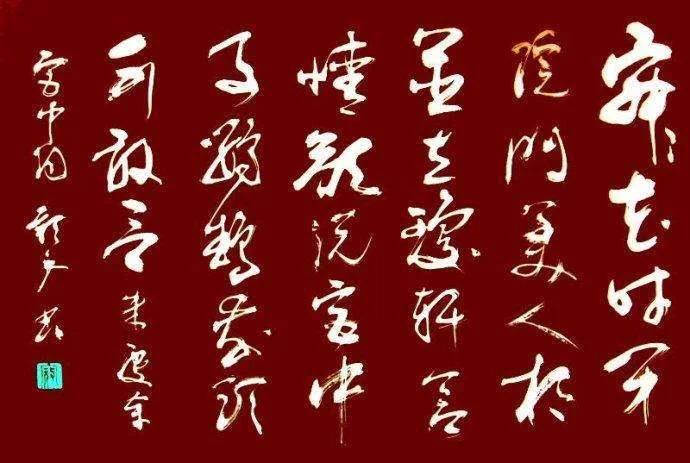 寂〻花时闭
院门美人相
並立琼轩含
情欲说宫中
事鹦鹉前头
不敢言朱庆余
宫中词 书